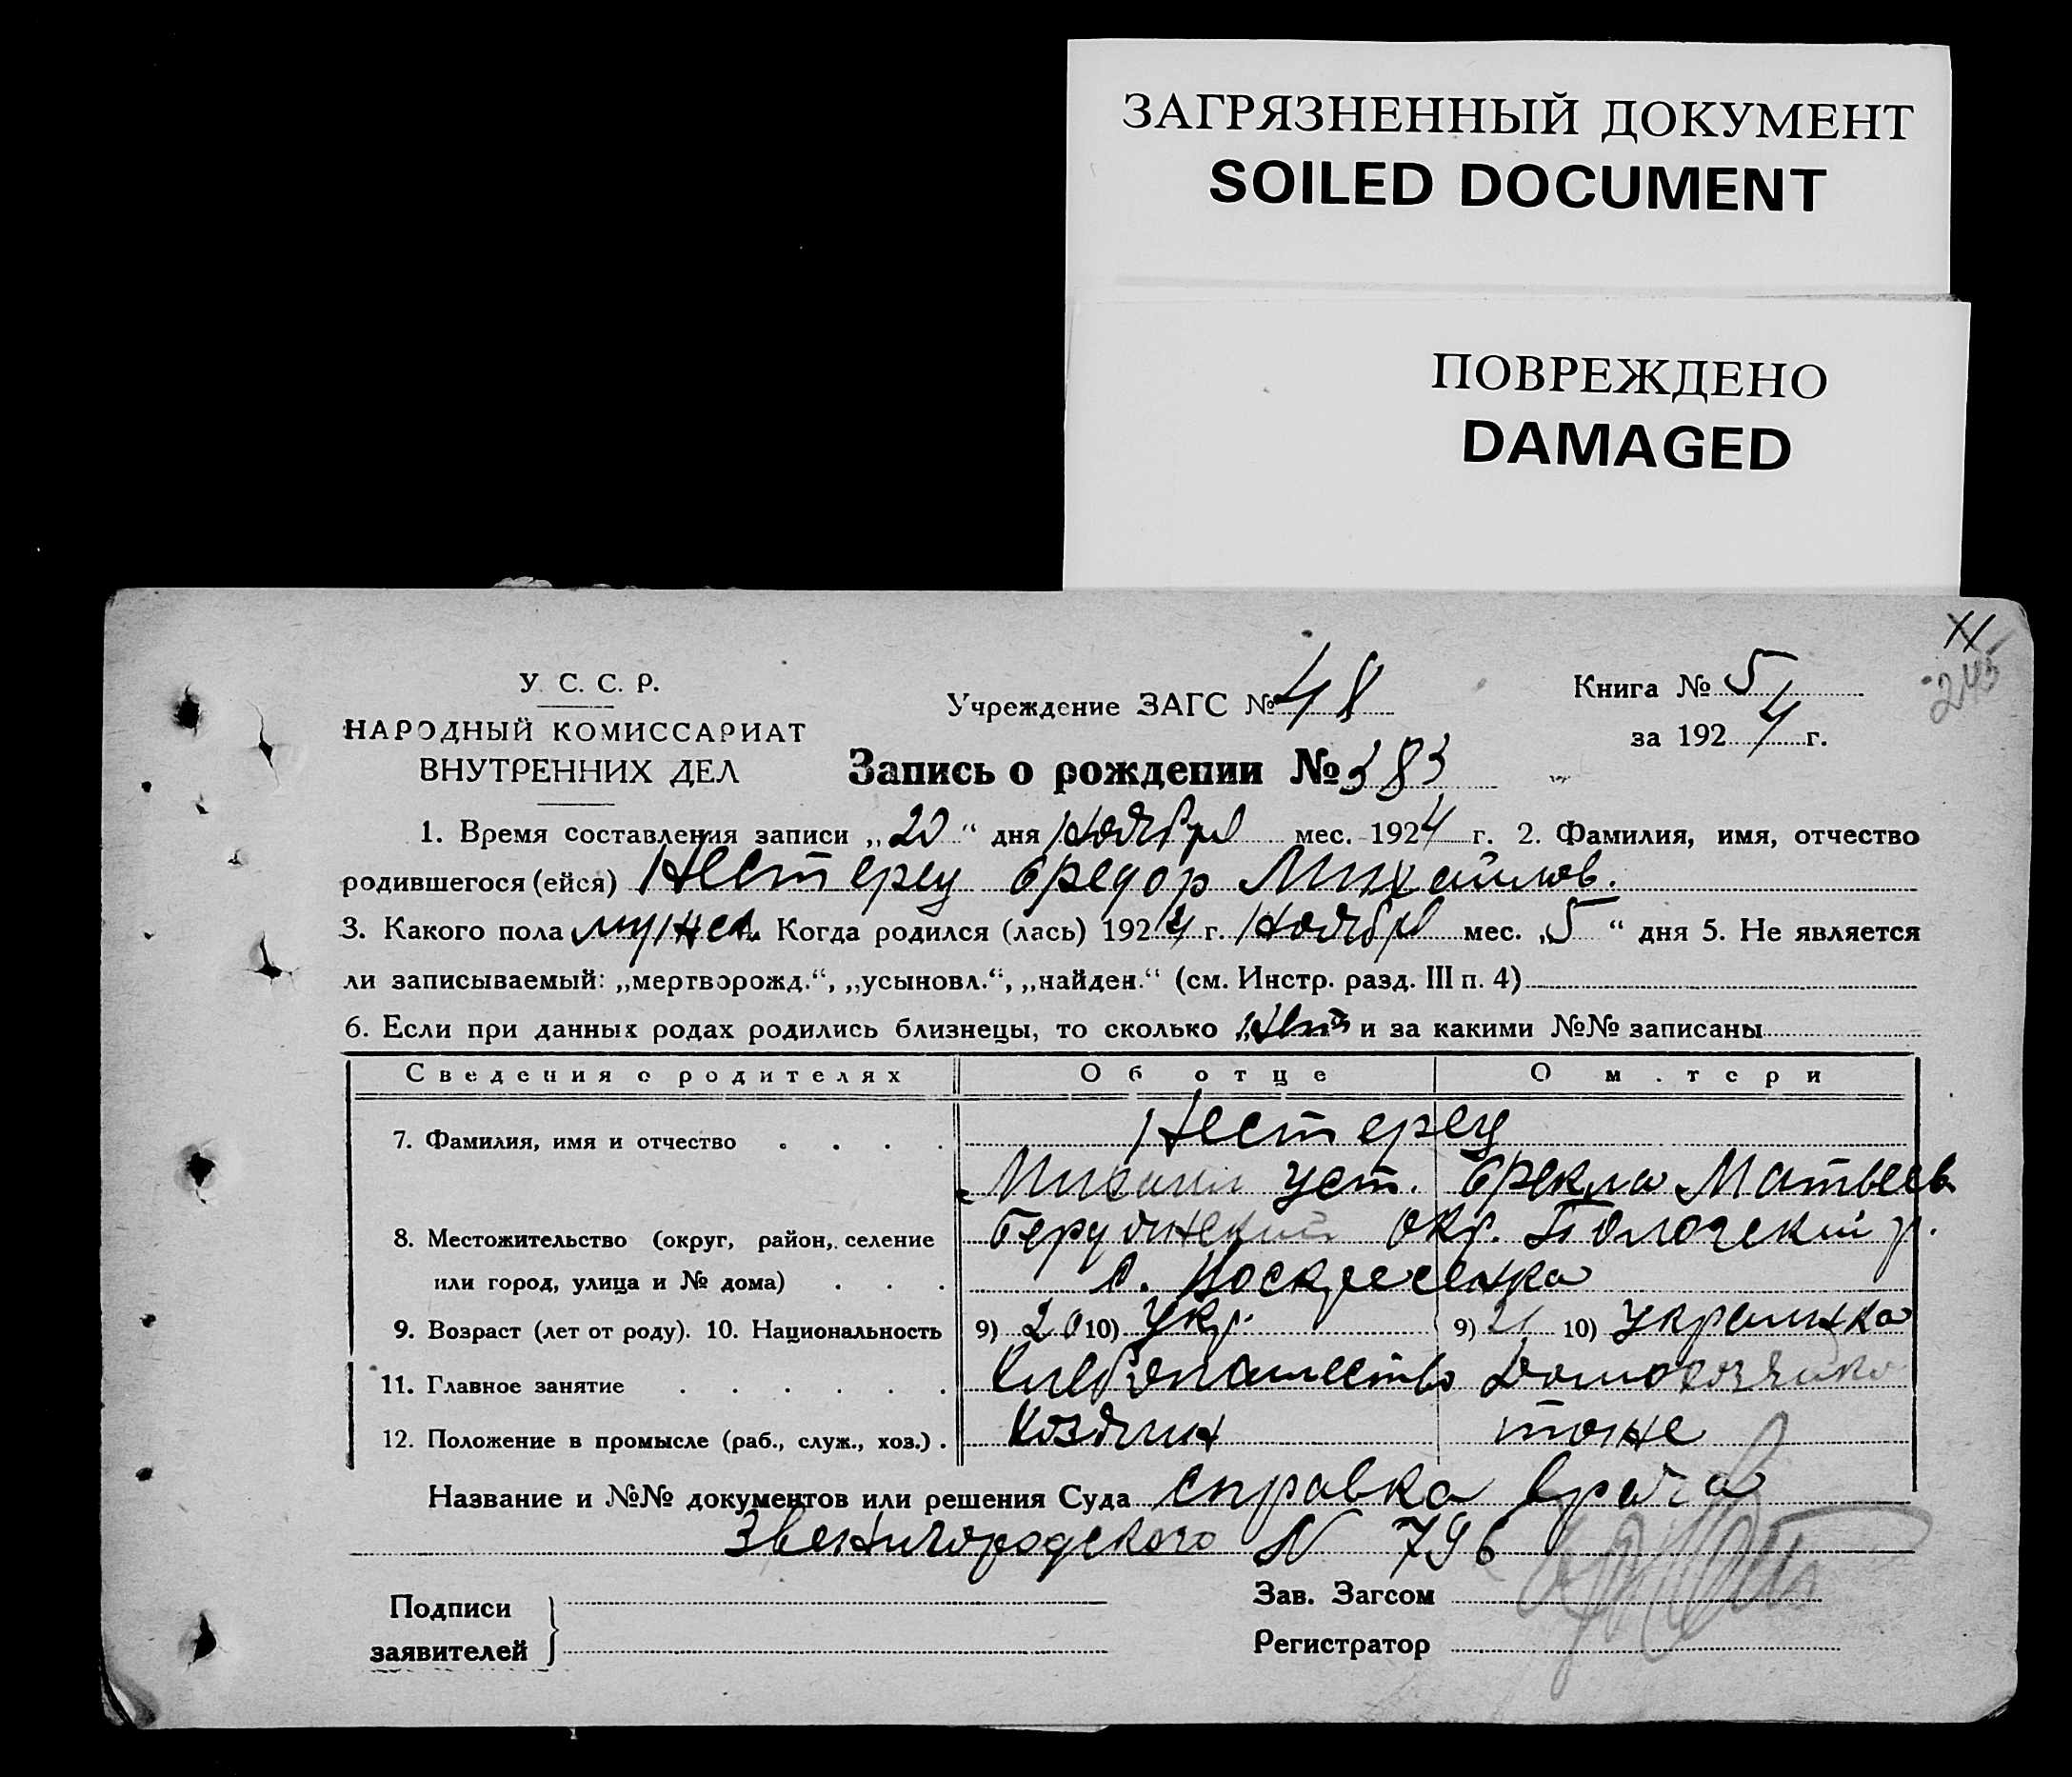 ЗАГРЯЗНЕННЫЙ ДОКУМЕНТ
SOILED DOCUMENT
ПОВРЕЖДЕНО
DAMAGED
245
У. С. С. Р.
НАРОДНЫЙ КОМИССАРИАТ
ВНУТРЕННИХ ДЕЛ
Учреждение ЗАГС № 48
Книга № 5
за 1924 г.
Запись о рождении № 383
1. Время составления записи „20“ дня Ноября мес. 1924 г. 2. Фамилия, имя, отчество
родившегося (ейся) Нестерец Федор Михайлов.
3. Какого пола мужск. Когда родился (лась) 1924 г. Ноября мес. „5“ дня 5. Не является
ли записываемый: „мертворожд.“, „усыновл.“, „найден.“ (см. Инстр. разд. III п. 4)
6. Если при данных родах родились близнецы, то сколько нет и за какими №№ записаны
Сведения о родителях Об отце О м.тери
7. Фамилия, имя и отчество Нестерец
Михаил Уст. Фекла Матвеев
8. Местожительство (округ, район, селение Бердянский окр. Пологский р.
или город, улица и № дома) с. Воскресенка
9. Возраст (лет от роду). 10. Национальность 9) 20 10) Укр. 9) 21 10) Украинка
11. Главное занятие Хлебопашество Домохозяйка
12. Положение в промысле (раб., служ., хоз.) Хозяин тоже
Название и №№ документов или решения Суда справка врача
Звенигородского N 796
Подписи
заявителей
Зав. Загсом
Регистратор